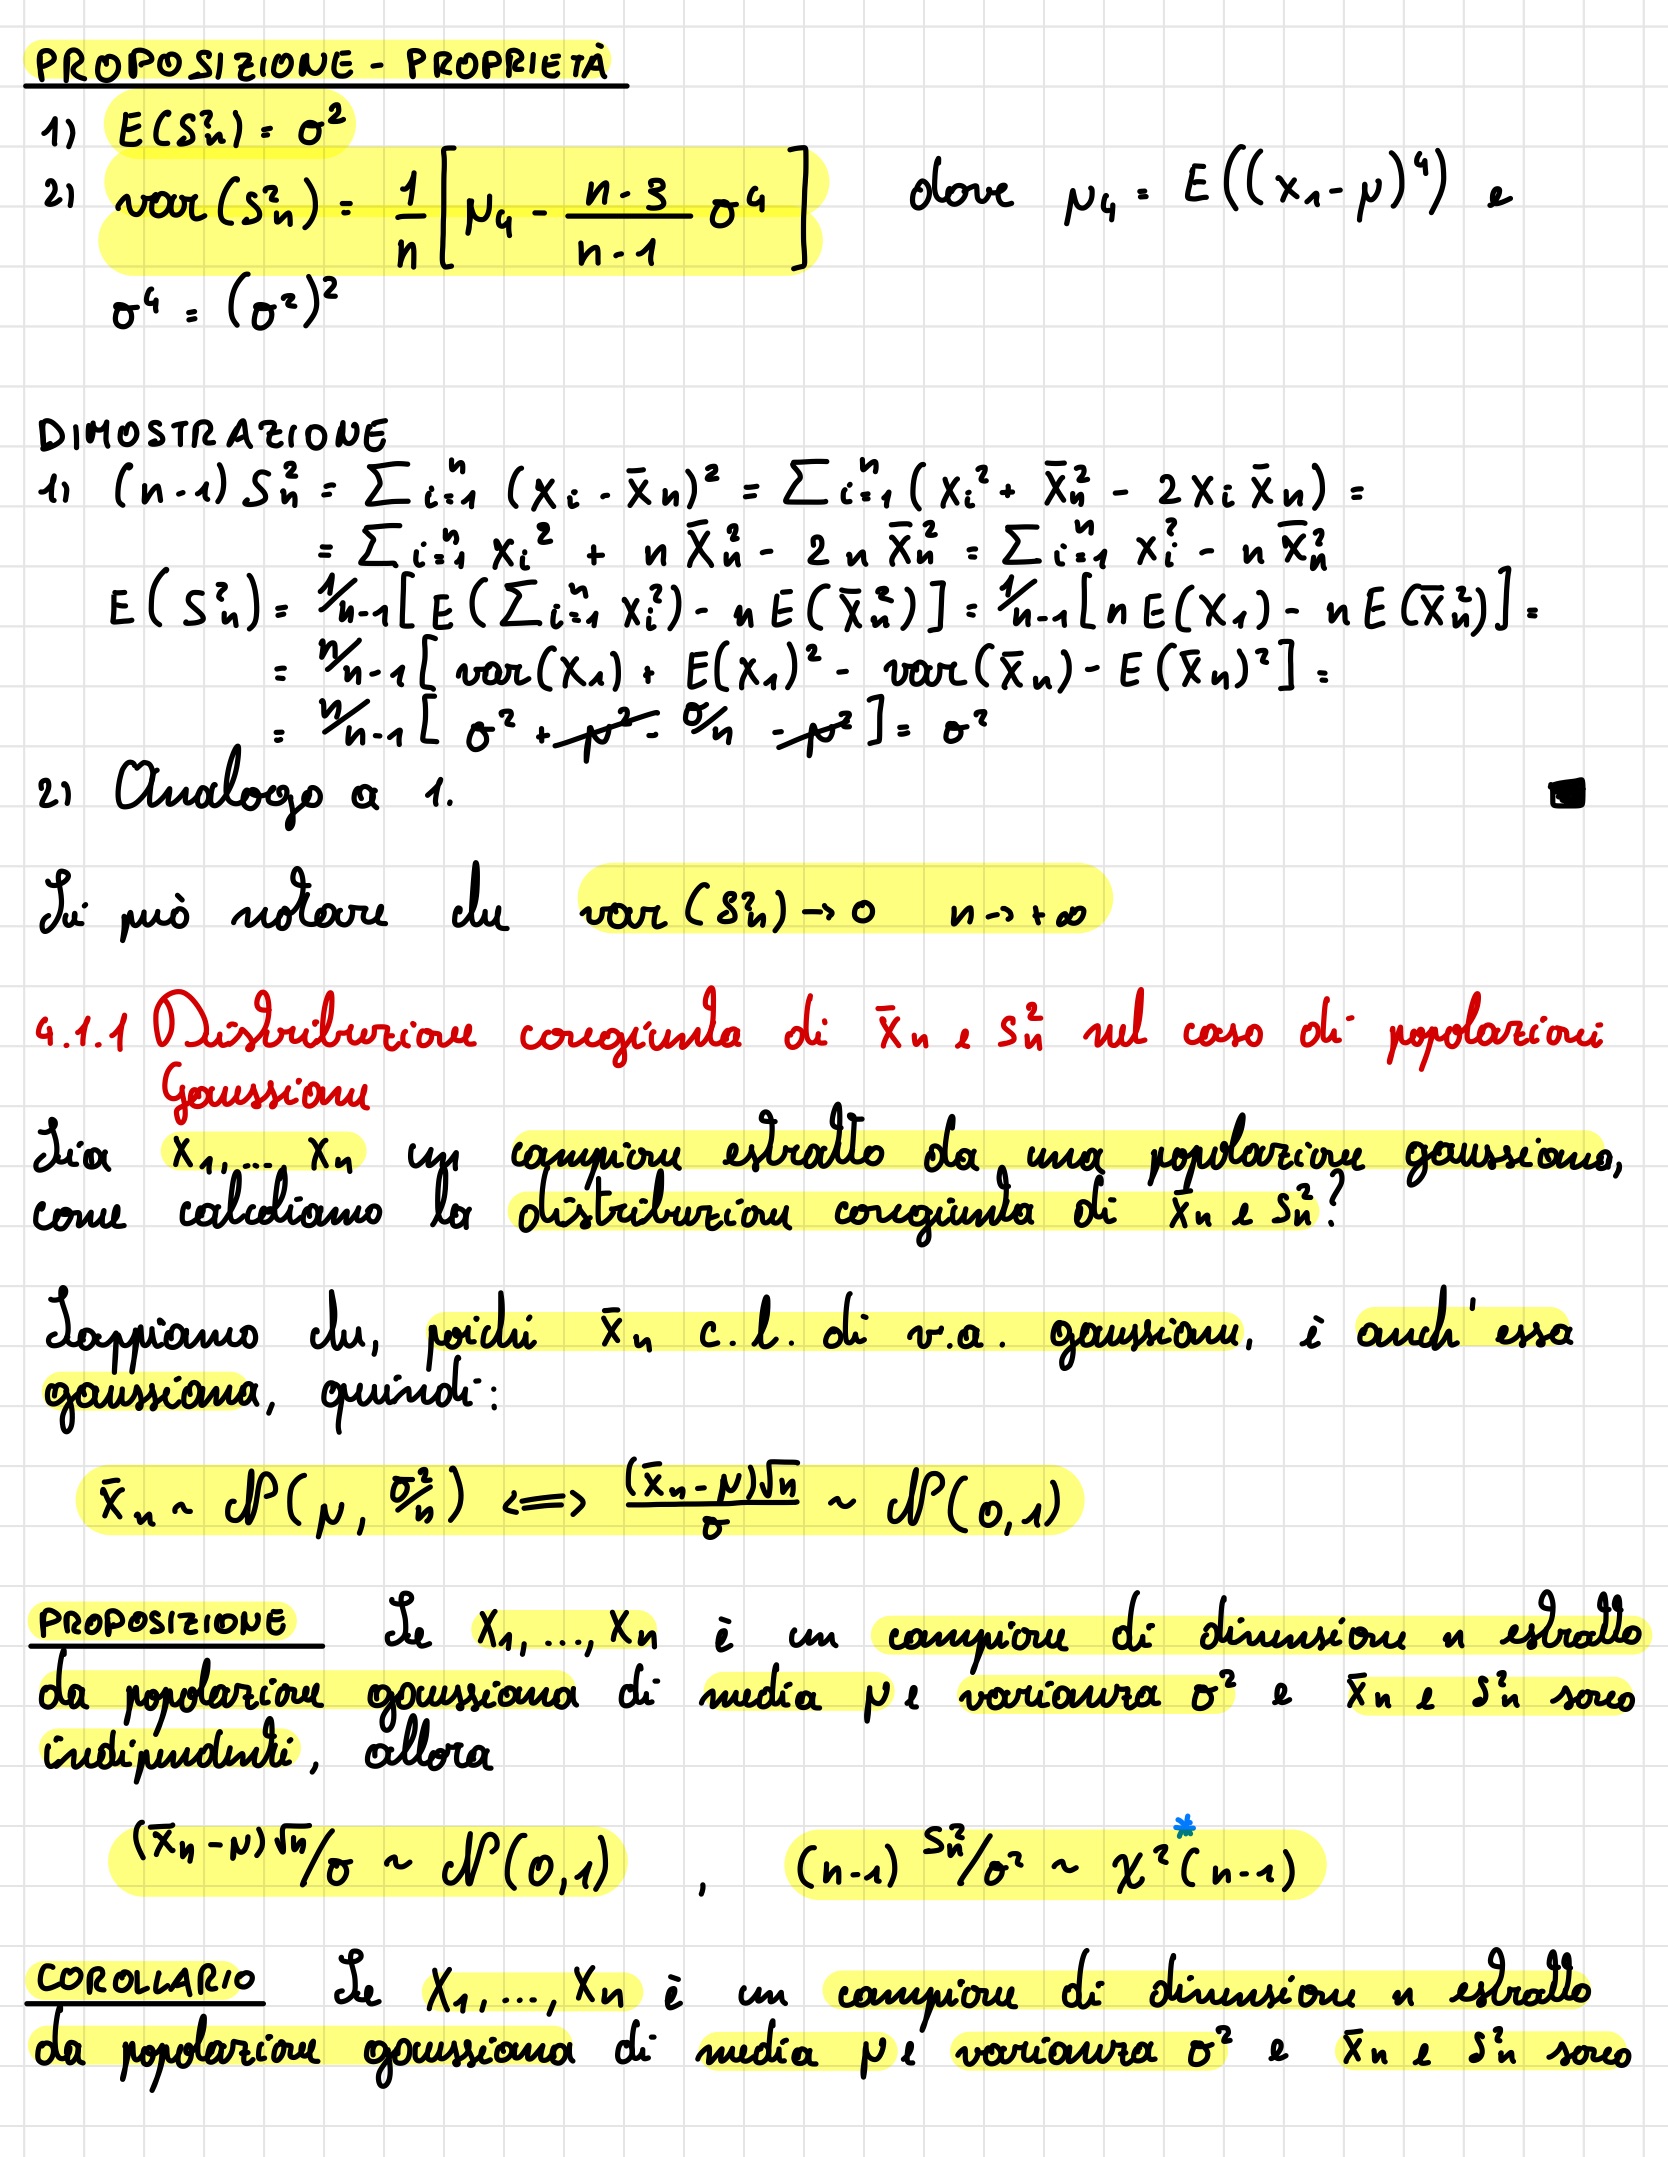 PROPOSIZIONE - PROPRIETÀ
1) E(S²n) = σ²
2) var(S²n) = 1/n [μ₄ - (n-3)/(n-1) σ⁴] dove μ₄ = E((x₁-μ)⁴) e
σ⁴ = (σ²)²
DIMOSTRAZIONE
1) (n-1) S²n = ∑ i=1 n (Xi - X̄n)² = ∑ i=1 n (Xi² + X̄n² - 2Xi X̄n) =
= ∑ i=1 n Xi² + n X̄n² - 2n X̄n² = ∑ i=1 n Xi² - n X̄n²
E(S²n) = 1/n-1 [E(∑ i=1 n Xi²) - n E(X̄n²)] = 1/n-1 [n E(X₁) - n E(X̄n²)] =
= n/n-1 [var(X₁) + E(X₁)² - var(X̄n) - E(X̄n)²] =
= n/n-1 [σ² + μ² - σ/n - μ²] = σ²
2) Analogo a 1.
Si può notare che var(S²n) → 0 n → +∞
4.1.1 Distribuzione congiunta di X̄n e S²n nel caso di popolazioni
Gaussiane
Sia X₁,... Xn un campione estratto da una popolazione gaussiana,
come calcoliamo la distribuzione congiunta di X̄n e S²n?
Sappiamo che, poiché X̄n c.l. di v.a. gaussiane, è anch'essa
gaussiana, quindi:
X̄n ~ N(μ, σ²/n) ⟺ (X̄n - μ)√n/σ ~ N(0,1)
PROPOSIZIONE Se X₁,...,Xn è un campione di dimensione n estratto
da popolazione gaussiana di media μ e varianza σ² e X̄n e S²n sono
indipendenti, allora
(X̄n - μ)√n/σ ~ N(0,1) , (n-1) S²n/σ² ~ χ²*(n-1)
COROLLARIO Se X₁,...,Xn è un campione di dimensione n estratto
da popolazione gaussiana di media μ e varianza σ² e X̄n e S²n sono